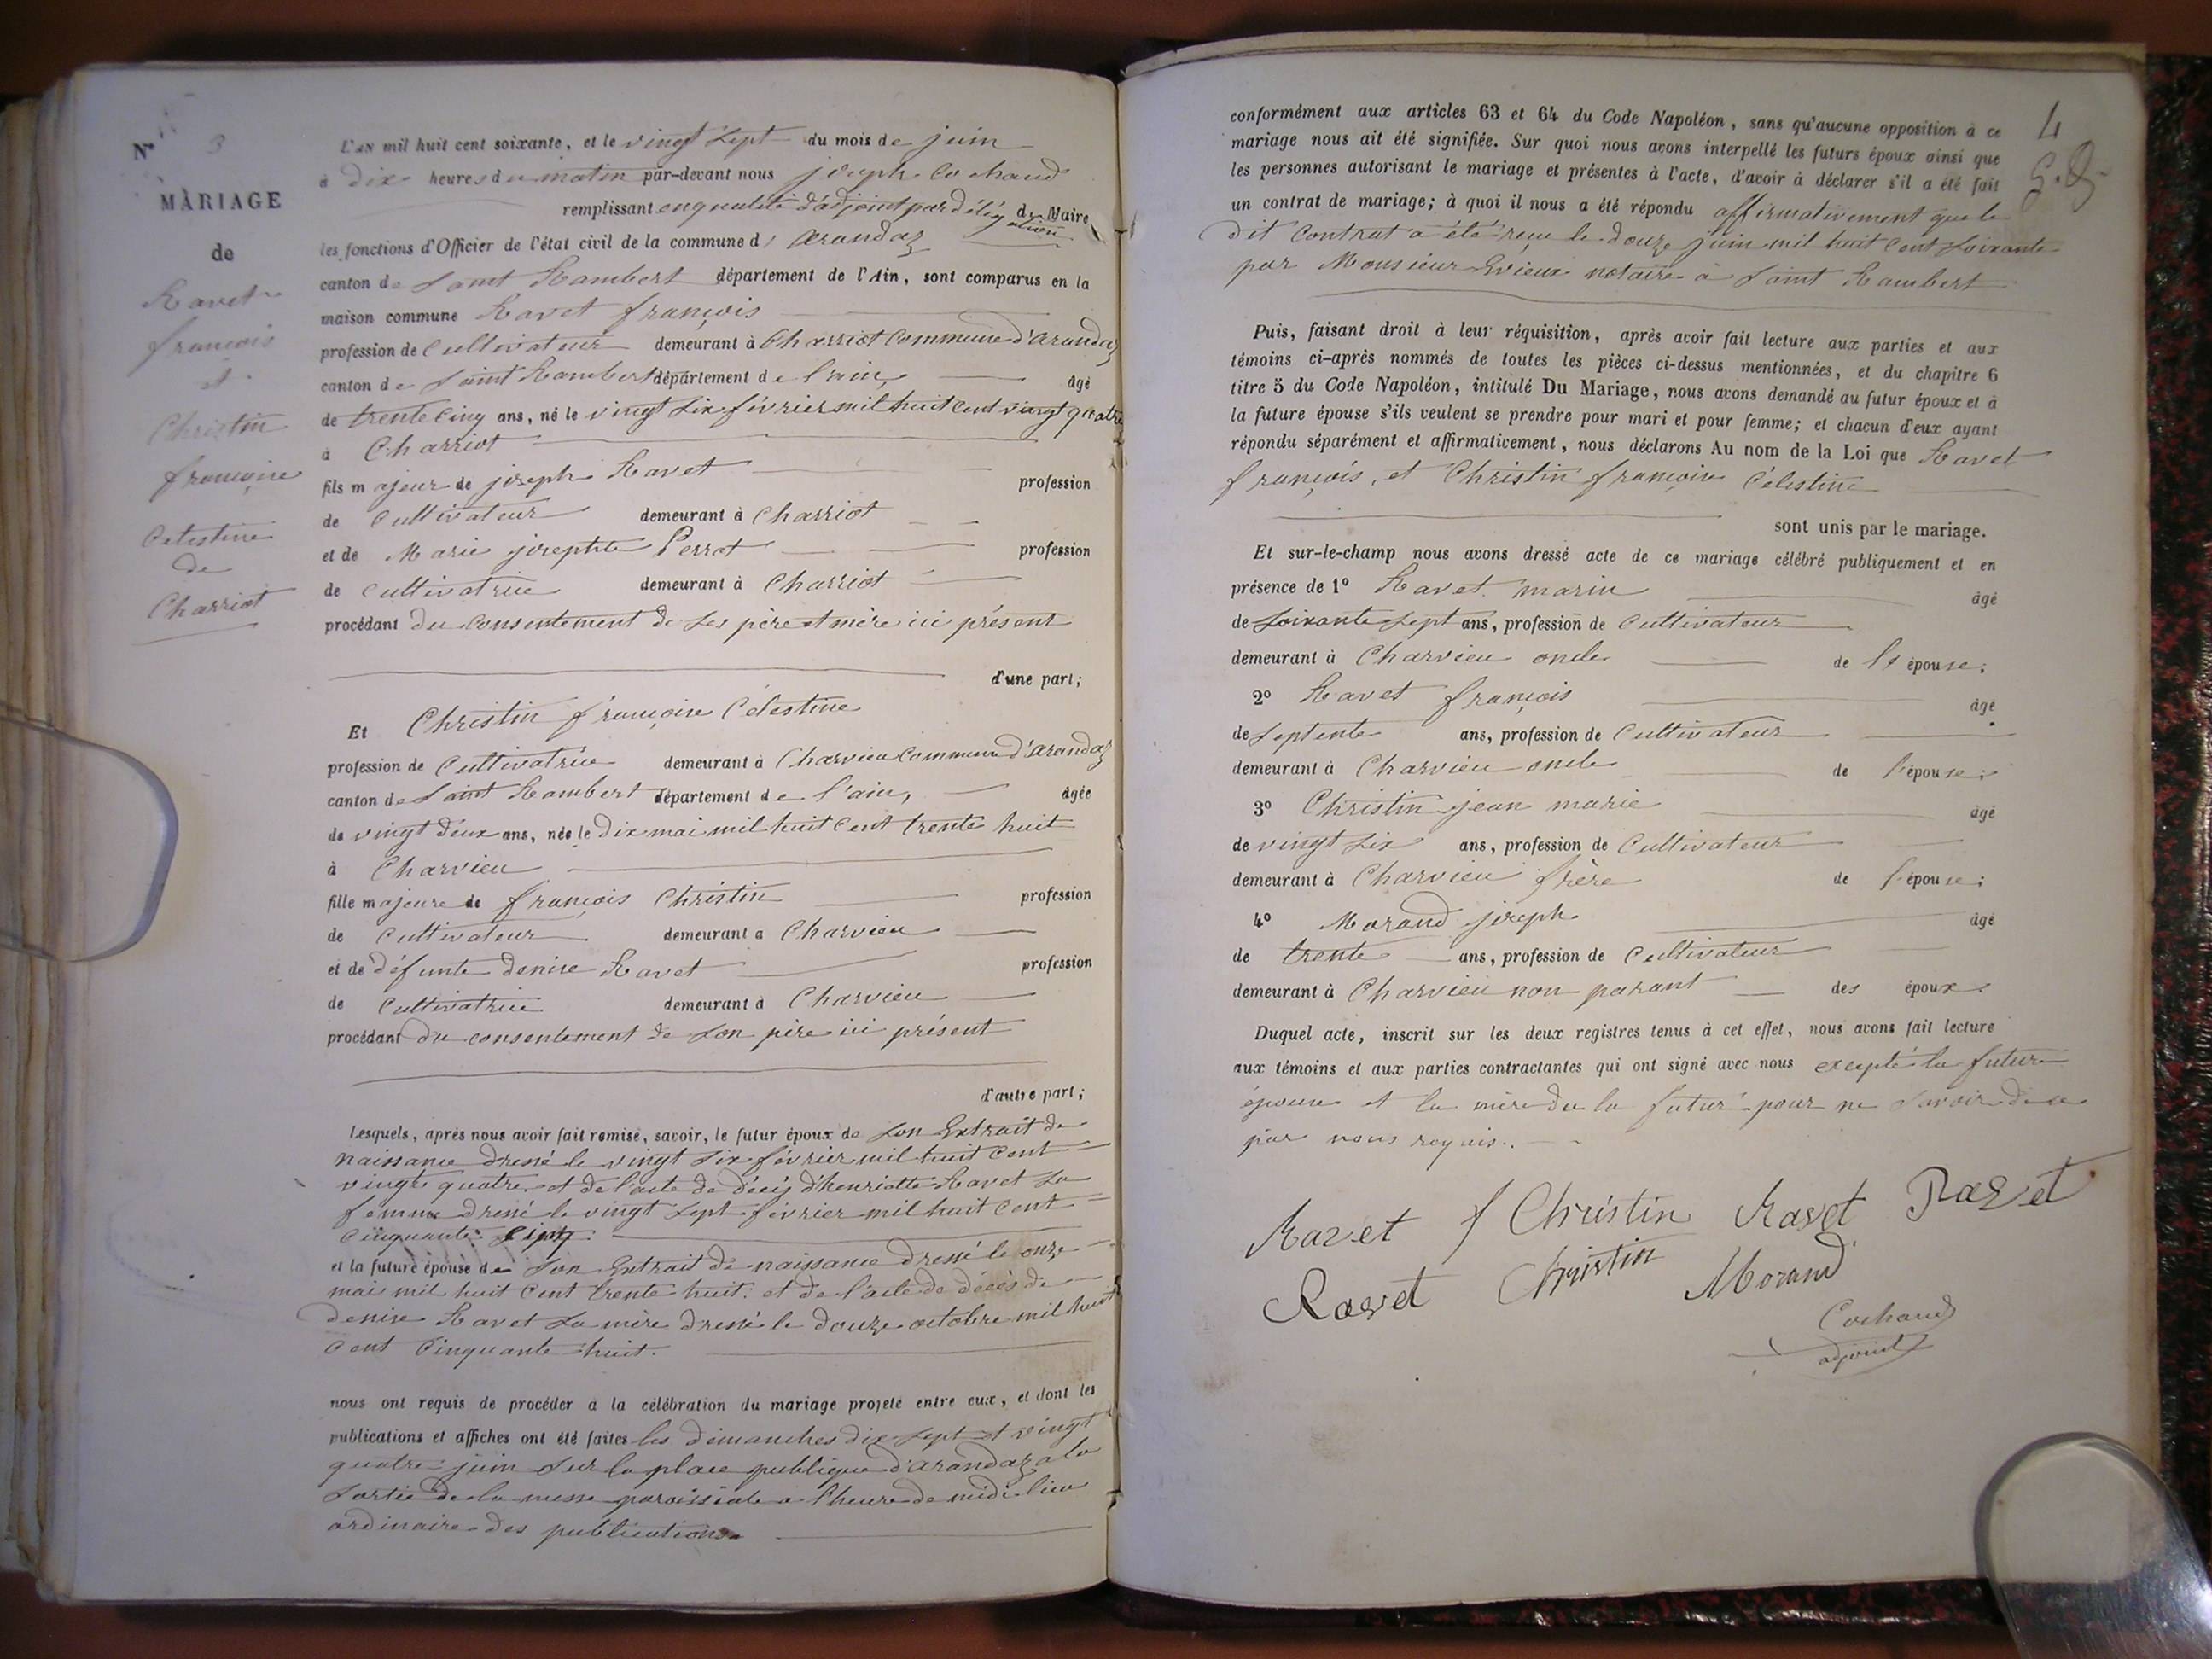 N° 3
MARIAGE
de
Ravet
françois
et
Christin
françoise
Celestine
de
Charriot
L'AN mil huit cent soixante, et le vingt sept du mois de juin
à dix heures du matin par-devant nous joseph Cochaud
remplissant en qualité d'adjoint par délégation du Maire
les fonctions d'Officier de l'état civil de la commune d' arandaz
canton de Saint Rambert département de l'Ain, sont comparus en la
maison commune Ravet françois
profession de Cultivateur demeurant à Charriot Commune d'arandaz
canton de Saint Rambert département de l'ain, âgé
de trente cinq ans, né le vingt six février mil huit cent vingt quatre
à Charriot
fils majeur de joseph Ravet profession
de Cultivateur demeurant à Charriot
et de Marie josephte Perrot profession
de cultivatrice demeurant à Charriot
procédant du consentement de ses père et mère ici présent
d'une part;
Et Christin françoise Célestine
profession de Cultivatrice demeurant à Charvieu Commune d'arandaz
canton de Saint Rambert département de l'ain, âgée
de vingt deux ans, née le dix mai mil huit cent trente huit
à Charvieu
fille majeure de françois Christin profession
de cultivateur demeurant à Charvieu
et de défunte denise Ravet profession
de Cultivatrice demeurant à Charvieu
procédant du consentement de son père ici présent
d'autre part;
Lesquels, après nous avoir fait remise, savoir, le futur époux de son Extrait de
naissance dressé le vingt six février mil huit cent
vingt quatre et de l'acte de décès d'henriette Ravet sa
femme dressé le vingt sept février mil huit cent
cinquante
et la future épouse de son Extrait de naissance dressé le onze
mai mil huit cent trente huit. et de l'acte de décès de
denise Ravet sa mère dressé le douze octobre mil huit
cent cinquante huit.
nous ont requis de procéder à la célébration du mariage projeté entre eux, et dont les
publications et affiches ont été faites les dimanches dix sept et vingt
quatre juin sur la place publique d'arandaz a la
sortie de la messe paroissiale a l'heure de midi lieu
ordinaire des publications
4
conformément aux articles 63 et 64 du Code Napoléon, sans qu'aucune opposition à ce
mariage nous ait été signifiée. Sur quoi nous avons interpellé les futurs époux ainsi que
les personnes autorisant le mariage et présentes à l'acte, d'avoir à déclarer s'il a été fait
un contrat de mariage; à quoi il nous a été répondu affirmativement que le
dit Contrat a été reçu le douze juin mil huit cent soixante
par Monsieur notaire à Saint Rambert
Puis, faisant droit à leur réquisition, après avoir fait lecture aux parties et aux
témoins ci-après nommés de toutes les pièces ci-dessus mentionnées, et du chapitre 6
titre 5 du Code Napoléon, intitulé Du Mariage, nous avons demandé au futur époux et à
la future épouse s'ils veulent se prendre pour mari et pour femme; et chacun d'eux ayant
répondu séparément et affirmativement, nous déclarons Au nom de la Loi que Ravet
françois, et Christin françoise Célestine
sont unis par le mariage.
Et sur-le-champ nous avons dressé acte de ce mariage célébré publiquement et en
présence de 1° Ravet marin âgé
de soixante sept ans, profession de Cultivateur
demeurant à Charvieu oncle de l' épouse;
2° Ravet françois âgé
de septente ans, profession de Cultivateur
demeurant à Charvieu oncle de l'épouse;
3° Christin jean marie âgé
de vingt six ans, profession de Cultivateur
demeurant à Charvieu frère de l'épouse;
4° Morand joseph âgé
de trente ans, profession de Cultivateur
demeurant à Charvieu non parant des époux
Duquel acte, inscrit sur les deux registres tenus à cet effet, nous avons fait lecture
aux témoins et aux parties contractantes qui ont signé avec nous excepté la future
épouse et la mère du la futur pour ne savoir de ce
par nous requis.
Ravet f Christin Ravet Ravet
Ravet Christin Morand
Cochaud
adjoint